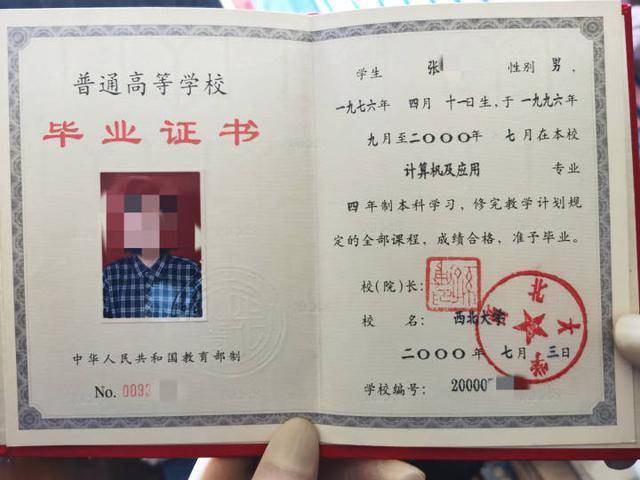 普通高等学校
毕业证书
中华人民共和国教育部制
No. 0093
学生 张 性别 男，
一九七六年 四月 十一日生，于一九九六年
九月至二〇〇〇年 七月在本校
计算机及应用 专业
四年制本科学习，修完教学计划规
定的全部课程，成绩合格，准予毕业。
校（院）长：
校 名： 西北大学
二〇〇〇年 七月 三日
学校编号： 20000